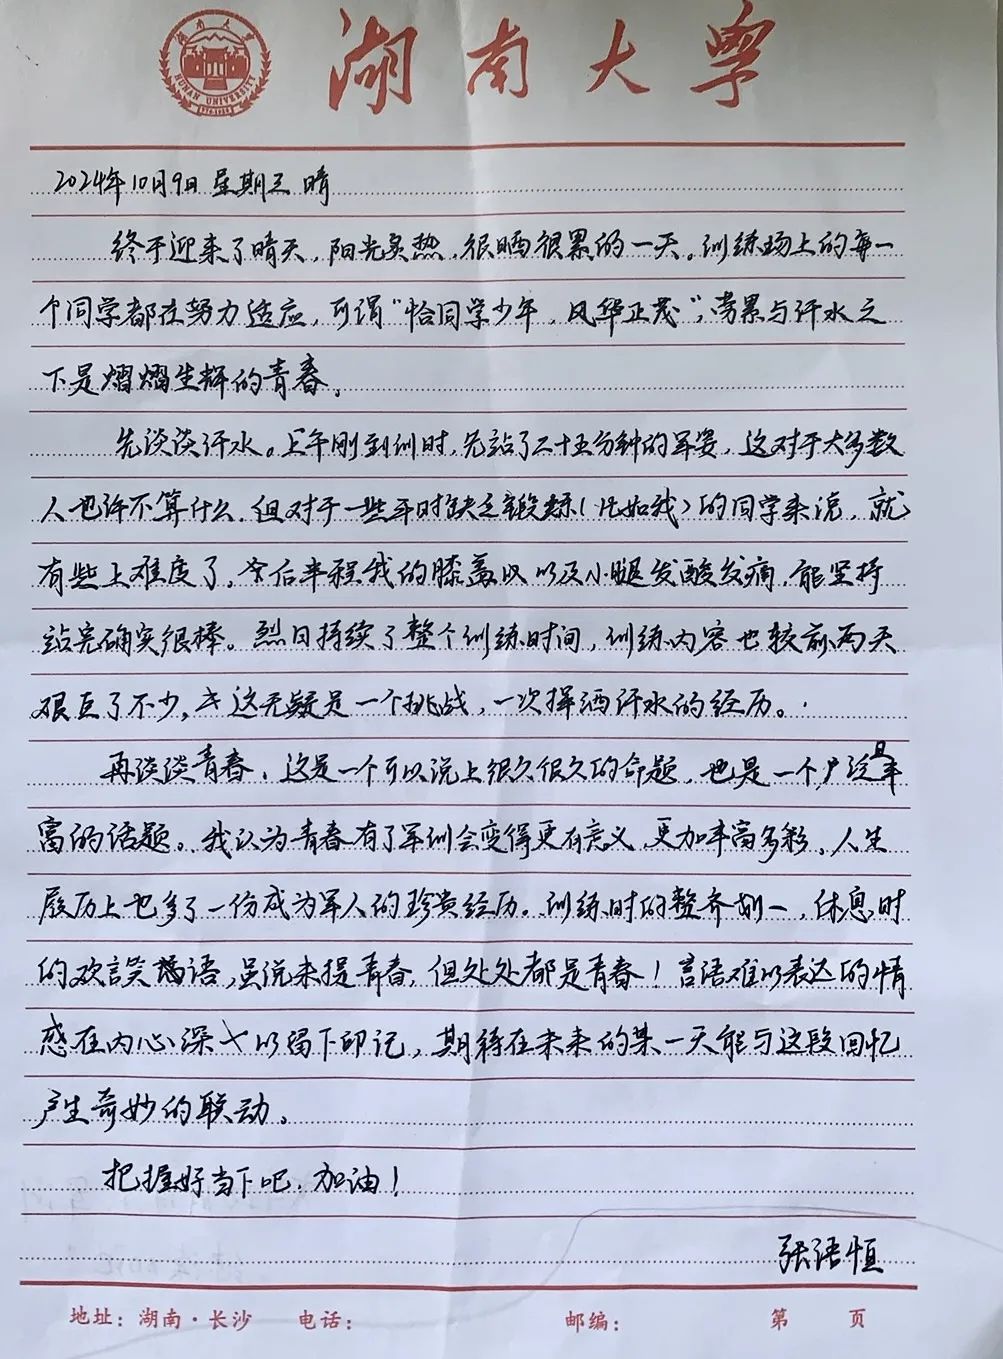 湖南大学
HUNAN UNIVERSITY
2024年10月9日 星期三 晴
终于迎来了晴天，阳光炙热，很晒很累的一天。训练场上的每一
个同学都在努力适应，可谓“恰同学少年，风华正茂”，劳累与汗水之
下是熠熠生辉的青春。
先谈谈汗水。上午刚到训时，先站了二十五分钟的军姿，这对于大多数
人也许不算什么，但对于一些平时缺乏锻炼（比如我）的同学来说，就
有些上难度了。后半程我的膝盖以及小腿发酸发痛，能坚持
站完确实很棒。烈日持续了整个训练时间，训练内容也较前两天
艰巨了不少，这无疑是一个挑战，一次挥洒汗水的经历。
再谈谈青春，这是一个可以说上很久很久的命题，也是一个广泛且丰
富的话题。我认为青春有了军训会变得更有意义，更加丰富多彩，人生
履历上也多了一份成为军人的珍贵经历。训练时的整齐划一，休息时
的欢言笑语，虽说未提青春，但处处都是青春！言语难以表达的情
感在内心深处留下印记，期待在未来的某一天能与这段回忆
产生奇妙的联动。
把握好当下吧，加油！
张语恒
地址：湖南·长沙 电话： 邮编： 第 页